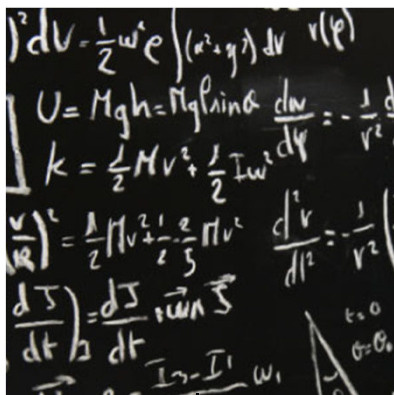 )² dV = 1/2 w² ρ ∫(x² + y²) dv   v(φ)
U = Mgh = Mgl sin θ   dw/dφ = - 1/r² d
k = 1/2 Mv² + 1/2 Iw²
(v/R)² = 1/2 Mv² + 1/2 · 2/5 Mv²   d²v/dl² = - 1/r² (
dJ/dt ) = dJ/dt + w ∧ J
t = 0
I₃ - I₁ w₁   θ = θ₀